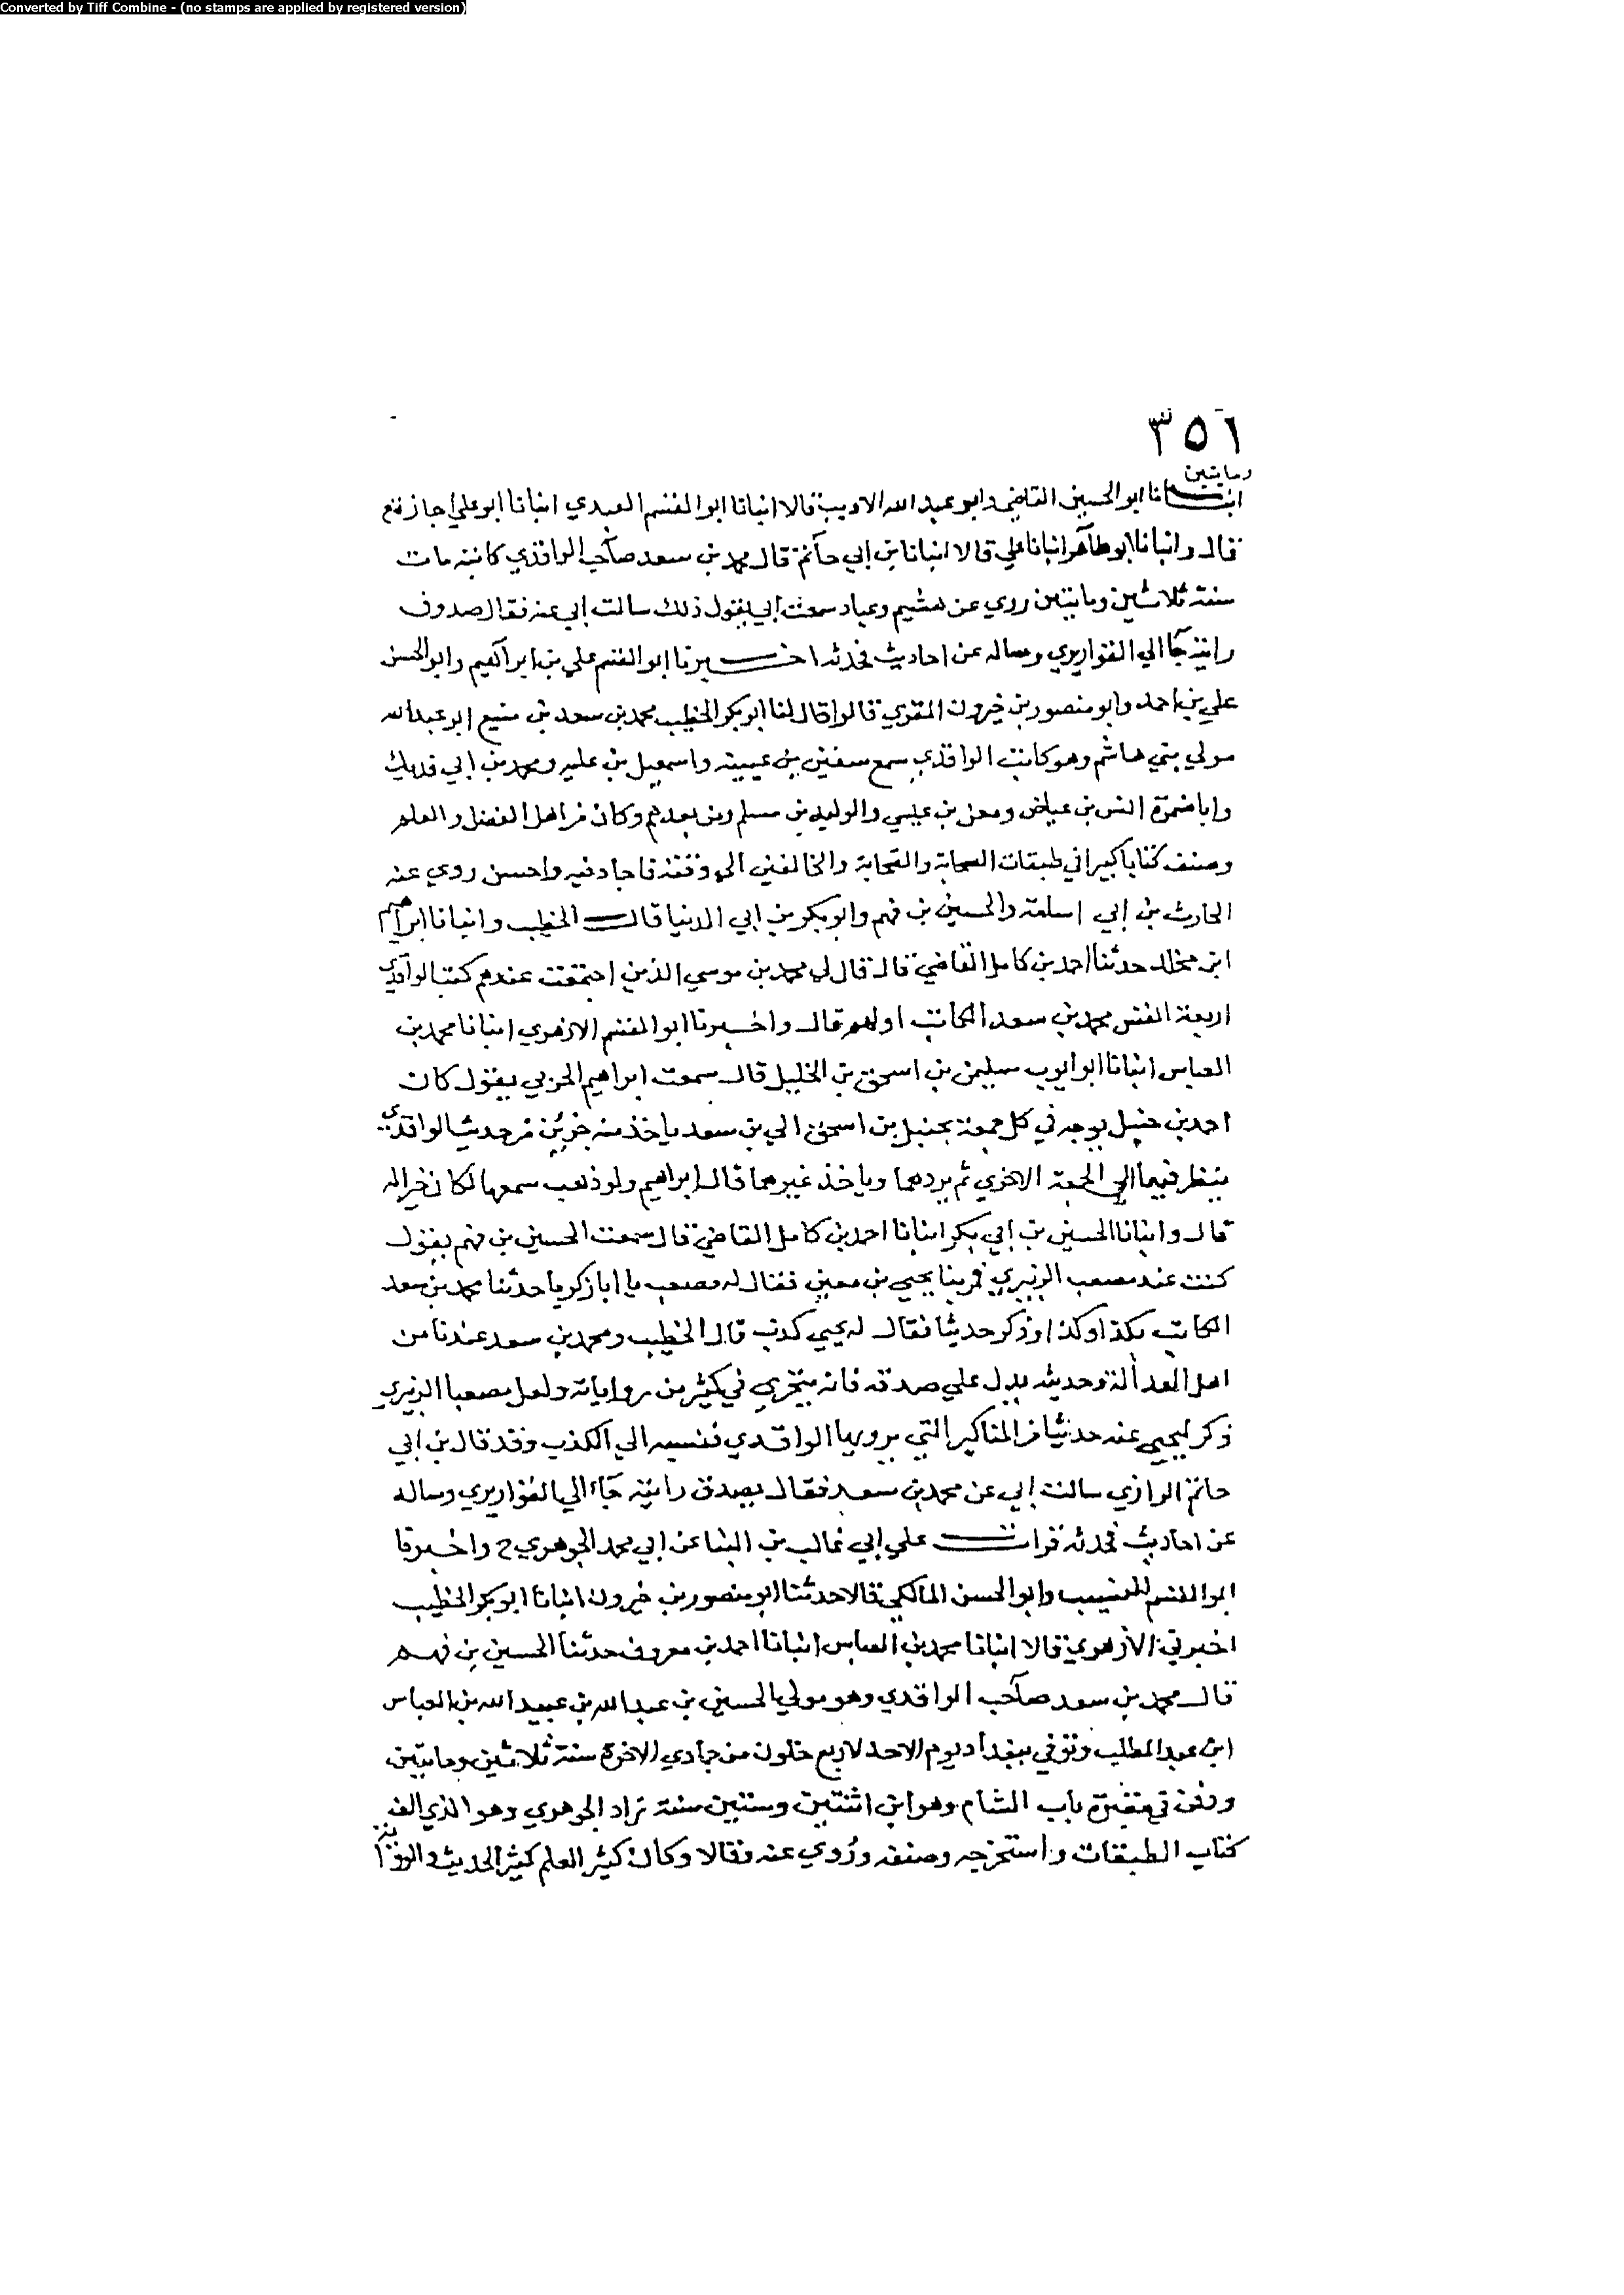 Converted by Tiff Combine - (no stamps are applied by registered version)
٣٥٦
ومايتين
انبانا ابو الحسين القاضي وابو عبد الله الاديب قالا انبانا ابو القسم العبدي انبانا ابو علي اجازة ح
قال وانبانا ابو طاهر انبانا علي قالا انبانا بن ابي حاتم قال محمد بن سعد صاحب الواقدي كاتبه مات
سنة ثلاثين ومايتين روي عن هشيم وعباد سمعت ابي يقول ذلك سالت ابي عنه فقال صدوق
رايته جا الي القواريري وساله عن احاديث فحدثه اخبرنا ابو القسم علي بن ابراهيم وابو الحسن
علي بن احمد وابو منصور بن خيرون المقري قالوا قال لنا ابو بكر الخطيب محمد بن سعد بن منيع ابو عبد الله
مولي بني هاشم وهو كاتب الواقدي سمع سفين بن عيينه واسمعيل بن عليه ومحمد بن ابي فديك
وابا ضمرة انس بن عياض ومعن بن عيسي والوليد بن مسلم ومن بعدهم وكان من اهل الفضل والعلم
وصنف كتابا كبيرا في طبقات الصحابة والتحابة والخالفين الي وقته فاجاد فيه واحسن روي عنه
الحارث بن ابي اسامة والحسين بن فهم وابو بكر بن ابي الدنيا قال الخطيب وانبانا ابراهيم
ابن مخلد حدثنا احمد بن كامل القاضي قال قال لي محمد بن موسي الذين اجتمعت عندهم كتب الواقدي
اربعة انفس محمد بن سعد الكاتب اولهم قال واخبرنا ابو القسم الازهري انبانا محمد بن
العباس انبانا ابو ايوب سليمن بن اسحق بن الخليل قال سمعت ابراهيم الحربي يقول كان
احمد بن حنبل يوجه في كل جمعة بحنبل بن اسحق الي بن سعد ياخذ منه جزئين من حديث الواقدي
ينظر فيهما الي الجمعة الاخري ثم يردهما وياخذ غيرهما قال ابراهيم ولو ذهب سمعها لكان خير اله
قال وانبانا الحسين بن ابي بكر انبانا احمد بن كامل القاضي قال سمعت الحسين بن فهم يقول
كنت عند مصعب الزبيري فمر بنا يحيي بن معين فقال له مصعب يا ابا زكريا حدثنا محمد بن سعد
الكاتب بكذا وكذا وذكر حديثا فقال له يحيي كذب قال الخطيب ومحمد بن سعد عندنا من
اهل العدالة وحديثه يدل علي صدقه فانه يتحري في كثير من رواياته ولعل مصعبا الزبيري
ذكر ليحيي عنه حديثا من المناكير التي يرويها الواقدي فنسبه الي الكذب وقد قال بن ابي
حاتم الرازي سالت ابي عن محمد بن سعد فقال يصدق رايته جاء الي القواريري وساله
عن احاديث فحدثه قرات علي ابي غالب بن البنا عن ابي محمد الجوهري ح واخبرنا
ابو القسم النسيب وابو الحسن المالكي قالا حدثنا ابو منصور بن خيرون انبانا ابو بكر الخطيب
اخبرني الازهري قالا انبانا محمد بن العباس انبانا احمد بن معروف حدثنا الحسين بن فهم
قال محمد بن سعد صاحب الواقدي وهو مولي الحسين بن عبد الله بن عبيد الله بن العباس
ابن عبد المطلب وتوفي ببغداد يوم الاحد لاربع خلون من جمادي الاخرة سنة ثلاثين ومايتين
ودفن في مقبرة باب الشام وهو ابن اثنتين وستين سنة زاد الجوهري وهو الذي الف
كتاب الطبقات واستخرجه وصنفه وروي عنه وقالا وكان كثير العلم كثير الحديث والرواية